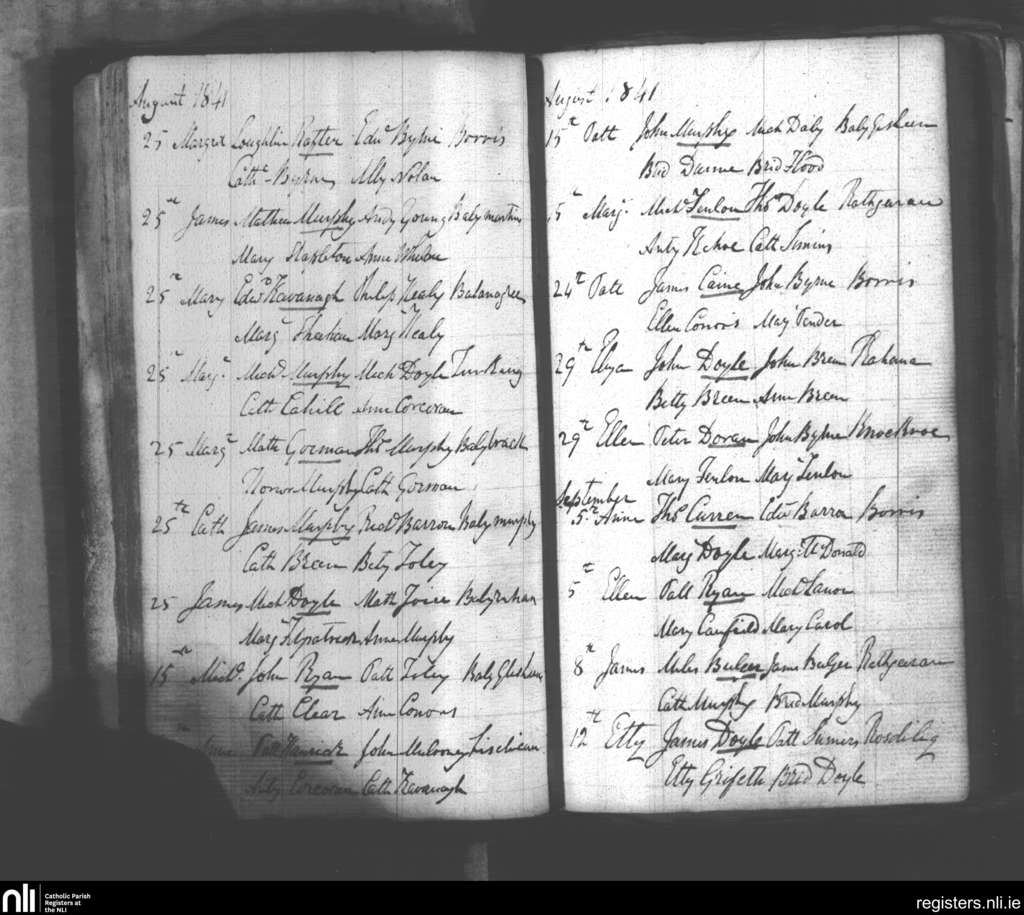 August 1841
25 Margret Loughlin Rafter Edw Byrne Borris
Cathe Byrne Ally Nolan
25th James Mathew Murphy Andy Young Balymartin
Mary Stapleton Anne Whelan
25th Mary Edwd Kavanagh Philip Healy Balanagree
Margt Sheehan Margt Healy
25th Margt Michl Murphy Michl Doyle
Cath Cahill Ann Corcoran
25 Margt Math Gorman Thos Murphy Balybrack
Murphy Cath Gorman
25th Cath James Murphy Richd Barron Balymurphy
Cath Breen Bety Foley
25 James Mich Doyle Math Joice
Margt Fitzpatrick Anne Murphy
15th Michl John Ryan Patt Foley
Cath Clear Ann Conors
Anne Patt John Mulrooney
Anty Corcoran Cath Kavanagh
August 1841
15th Patt John Murphy Mich Daly
Brid Dunne Brid Flood
15th Mary Michl Fenlon Thos Doyle Rathgaran
Anty Kehoe Cath
24th Patt James Caine John Byrne Borris
Ellen Conors Mary Pender
29th Elya John Doyle John Breen Rahana
Betty Breen Ann Breen
29th Ellen Peter Doran John Byrne Knockroe
Mary Fenlon Mary Fenlon
September
5th Anne Thos Curren Edw Barron Borris
Mary Doyle Margt McDonald
5th Ellen Patt Ryan Michl Lawor
Mary Canfield Mary Carol
8th James Miles Bulger James Bulger Rathgaran
Cath Murphy Brid Murphy
12th Etty James Doyle Patt Sumers
Etty Grifeth Brid Doyle
nli
Catholic Parish
Registers at
the NLI
registers.nli.ie